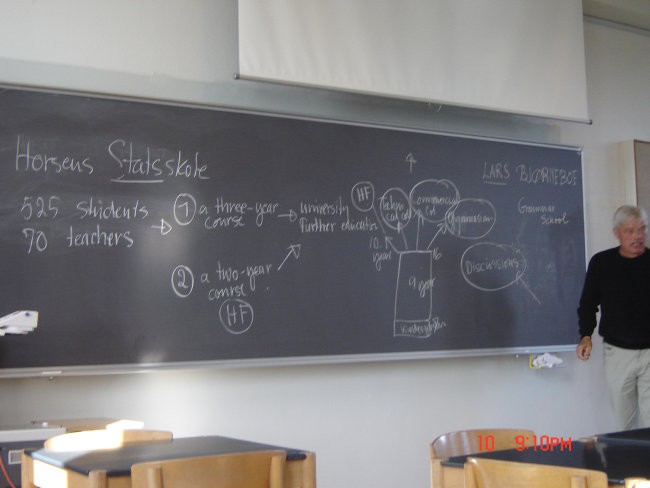 Horsens Statsskole
525 students
70 teachers
1 a three-year
course
university
further education
2 a two-year
course
HF
HF
Techno
Commercial
Gymnasium
10.
year
16
9 year
Kindergarten
LARS BJØRNEBOE
Grammar
School
Discussions
10 9:10PM